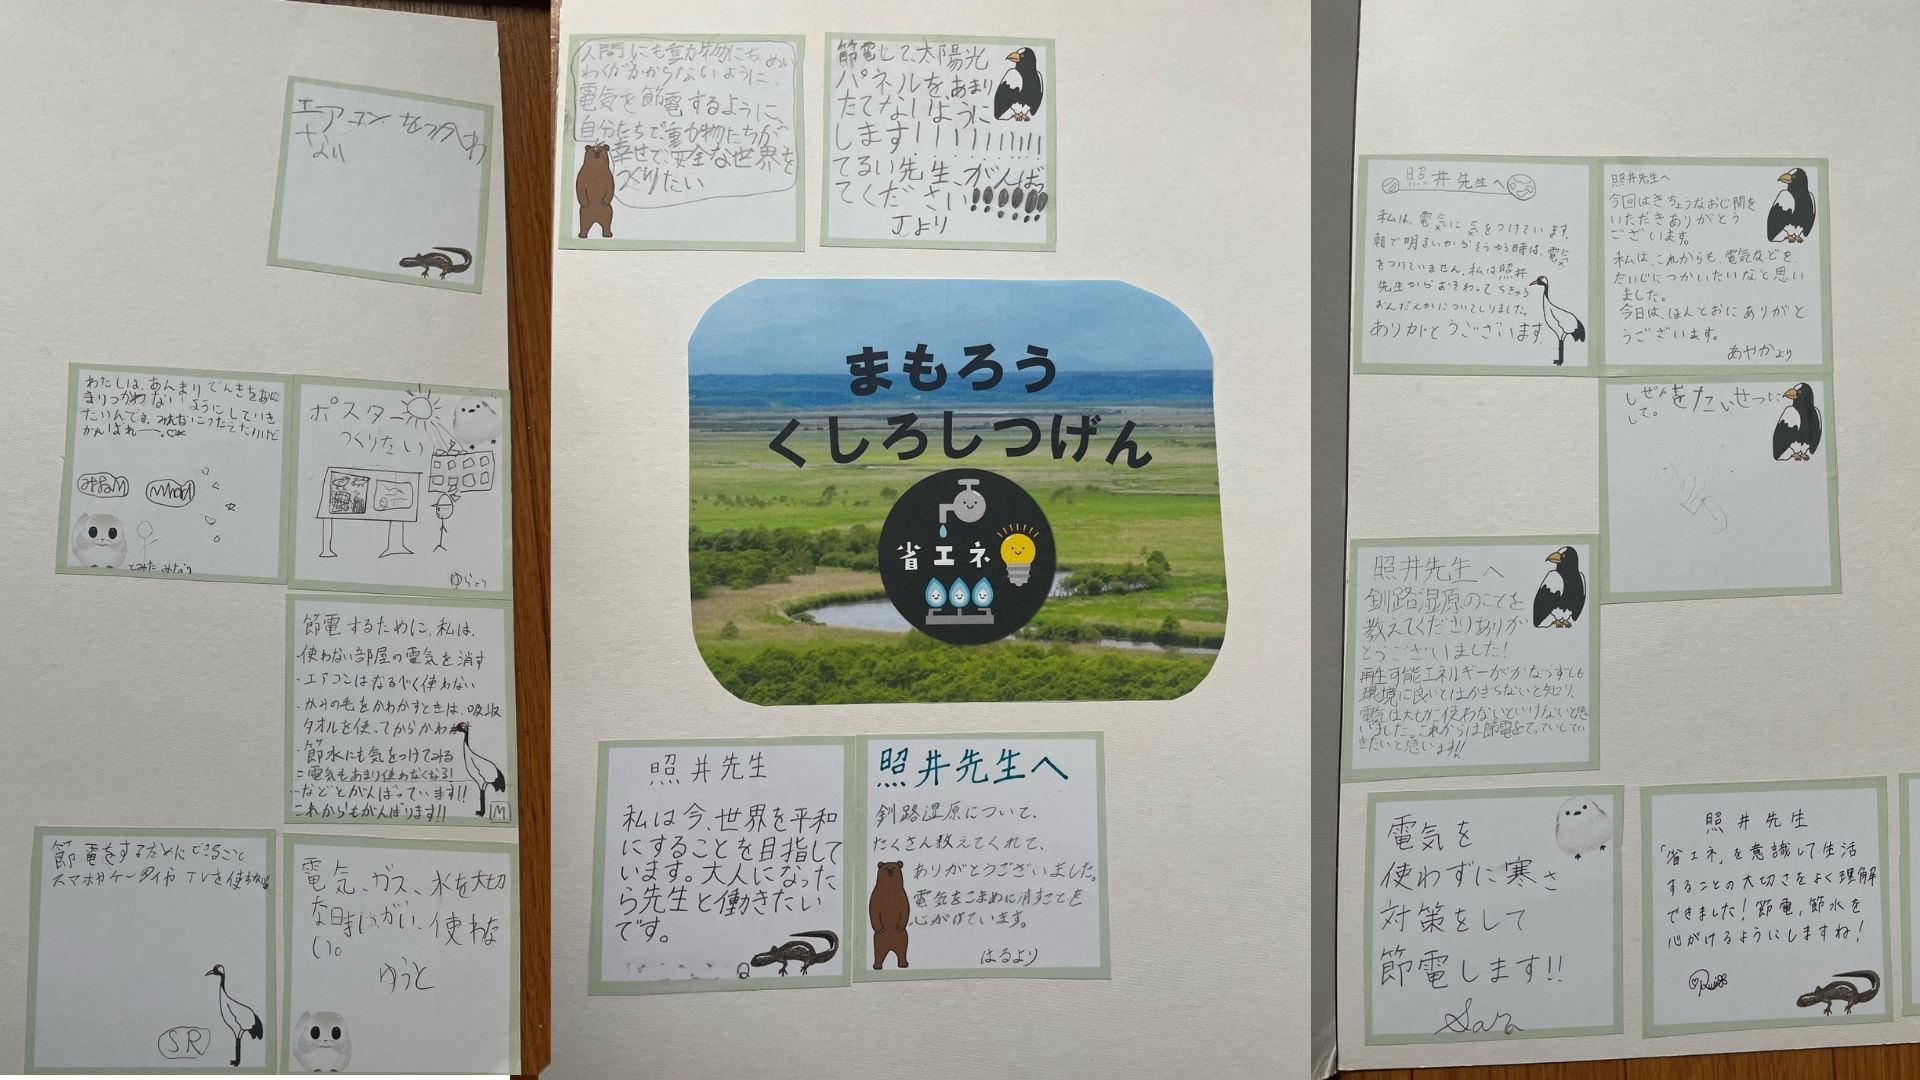 エアコンをつかわ
ない
わたしは、あんまりでんきをあん
まりつかわないようにしていき
たいんです。みんなに
がんばれー。
みお
とみた みなり
ポスター
つくりたい
ゆらより
節電するために、私は、
・使わない部屋の電気を消す
・エアコンはなるべく使わない
・かみの毛をかわかすときは、吸収
タオルを使ってからかわか
・節水にも気をつけてみる
=電気もあまり使わなくなる!
・などとがんばっています!!
これからもがんばります!!
M
節電をするためにできること
スマホやケータイやTVを使わない
SR
電気、ガス、水を大切
な時いがい、使わな
い。
ゆうと
人間にも動物にも、めい
わくがかからないように、
電気を節電するように、
自分たちで動物たちが
幸せで、安全な世界を
つくりたい
節電して、太陽光
パネルを、あまり
たてないように
します!!!!!!!!!!
てるい先生、がんばっ
てください!!!!!!
Jより
まもろう
くしろしつげん
省エネ
照井先生
私は今、世界を平和
にすることを目指して
います。大人になった
ら先生と働きたい
です。
照井先生へ
釧路湿原について、
たくさん教えてくれて、
ありがとうございました。
電気をこまめに消すことを
心がけています。
はるより
照井先生へ
私は、電気に気をつけています。
朝で明るいからそうゆう時は、電気
をつけていません。私は照井
先生からおそわってちきゅう
おんだんかについてしりました。
ありがとうございます。
照井先生へ
今回はきちょうなおじ間を
いただきありがとう
ございます。
私は、これからも、電気などを、
だいじにつかいたいなと思い
ました。
今日は、ほんとおにありがと
うございます。
あやかより
しぜんをたいせつに
して。
照井先生へ
釧路湿原のことを
教えてくださりありが
とうございました!
再生可能エネルギーがかならずしも
環境に良いとはかぎらないと知り、
電気は大切に使わないといけないと思
いました。これからは節電をてっていしてい
きたいと思います!!
電気を
使わずに寒さ
対策をして
節電します!!
Sara
照井先生
「省エネ」を意識して生活
することの大切さをよく理解
できました!節電、節水を
心がけるようにしますね!